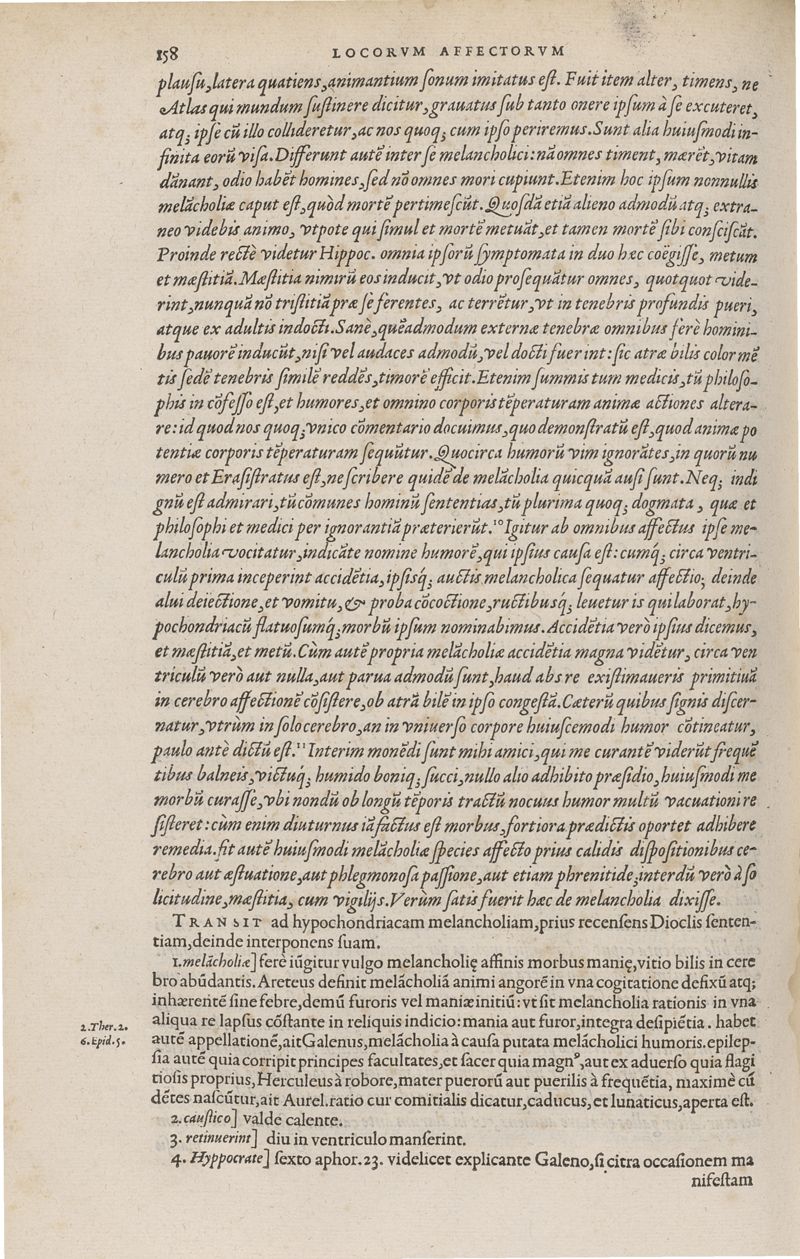 158 LOCORVM AFFECTORVM
plauſu, latera quatiens, animantium ſonum imitatus eſt. Fuit item alter, timens, ne
Atlas qui mundum ſuſtinere dicitur, grauatus ſub tanto onere ipſum à ſe excuteret,
atq; ipſe cū illo collideretur, ac nos quoq; cum ipſo periremus. Sunt alia huiuſmodi in-
finita eorū viſa. Differunt autē inter ſe melancholici: nā omnes timent, mærēt, vitam
dānant, odio habēt homines, ſed nō omnes mori cupiunt. Etenim hoc ipſum nonnullis
melācholiæ caput eſt, quòd mortē pertimeſcūt. Quoſdā etiā alieno admodū atq; extra-
neo videbis animo, vtpote qui ſimul et mortē metuāt, et tamen mortē ſibi conſciſcāt.
Proinde rectè videtur Hippoc. omnia ipſorū ſymptomata in duo hæc coëgiſſe, metum
et mæſtitiā. Mæſtitia nimirū eos inducit, vt odio proſequātur omnes, quotquot vide-
rint, nunquā nō triſtitiā præ ſe ferentes, ac terrētur, vt in tenebris profundis pueri,
atque ex adultis indocti. Sanè, quēadmodum externæ tenebræ omnibus ferè homini-
bus pauorē inducūt, niſi vel audaces admodū, vel docti fuerint: ſic atræ bilis color mē
tis ſedē tenebris ſimilē reddēs, timorē efficit. Etenim ſummis tum medicis, tū philoſo-
phis in cōfeſſo eſt, et humores, et omnino corporis tēperaturam animæ actiones altera-
re: id quod nos quoq; vnico cōmentario docuimus, quo demonſtratū eſt, quod animæ po
tentiæ corporis tēperaturam ſequūtur. Quocirca humorū vim ignorātes, in quorū nu
mero et Eraſiſtratus eſt, ne ſcribere quidē de melācholia quicquā auſi ſunt. Neq; indi
gnū eſt admirari, tū cōmunes hominū ſententias, tū plurima quoq; dogmata, quæ et
philoſophi et medici per ignorantiā præterierūt. 10 Igitur ab omnibus affectus ipſe me-
lancholia vocitatur, indicāte nomine humorē, qui ipſius cauſa eſt: cumq́; circa ventri-
culū prima inceperint accidētia, ipſisq́; auctis melancholica ſequatur affectio; deinde
alui deiectione, et vomitu, & proba cōcoctione, ructibusq́; leuetur is qui laborat, hy-
pochondriacū flatuoſumq́; morbū ipſum nominabimus. Accidētia verò ipſius dicemus,
et mæſtitiā, et metū. Cùm autē propria melācholiæ accidētia magna vidētur, circa ven
triculū verò aut nulla, aut parua admodū ſunt, haud abs re exiſtimaueris primitiuā
in cerebro affectionē cōſiſtere, ob atrā bilē in ipſo congeſtā. Cæterū quibus ſignis diſcer-
natur, vtrùm in ſolo cerebro, an in vniuerſo corpore huiuſcemodi humor cōtineatur,
paulo antè dictū eſt. 11 Interim monēdi ſunt mihi amici, qui me curantē viderūt frequē
tibus balneis, victuq́; humido boniq; ſucci, nullo alio adhibito præſidio, huiuſmodi me
morbū curaſſe, vbi nondū ob longū tēporis tractū nocuus humor multū vacuationi re
ſiſteret: cùm enim diuturnus iā factus eſt morbus, fortiora prædictis oportet adhibere
remedia. fit autē huiuſmodi melācholiæ ſpecies affecto prius calidis diſpoſitionibus ce-
rebro aut æſtuatione, aut phlegmonoſa paſſione, aut etiam phrenitide, interdū verò à ſo
licitudine, mæſtitia, cum vigilijs. Verùm ſatis fuerit hæc de melancholia dixiſſe.
TRANSIT ad hypochondriacam melancholiam, prius recenſens Dioclis ſenten-
tiam, deinde interponens ſuam.
1. melācholiæ] ferè iūgitur vulgo melancholię affinis morbus manię, vitio bilis in cere
bro abūdantis. Areteus definit melācholiā animi angorē in vna cogitatione defixū atq;
inhærentē ſine febre, demū furoris vel maniæ initiū: vt ſit melancholia rationis in vna
aliqua re lapſus cōſtante in reliquis indicio: mania aut furor, integra deſipiētia. habet
2. Ther. 2. autē appellationē, ait Galenus, melācholia à cauſa putata melācholici humoris. epilep-
6. Epid. 5. ſia autē quia corripit principes facultates, et ſacer quia magnꝰ, aut ex aduerſo quia flagi
tioſis proprius, Herculeus à robore, mater puerorū aut puerilis à frequētia, maximè cū
dētes naſcūtur, ait Aurel. ratio cur comitialis dicatur, caducus, et lunaticus, aperta eſt.
2. cauſtico] valde calente.
3. retinuerint] diu in ventriculo manſerint.
4. Hyppocrate] ſexto aphor. 23. videlicet explicante Galeno, ſi citra occaſionem ma
nifeſtam